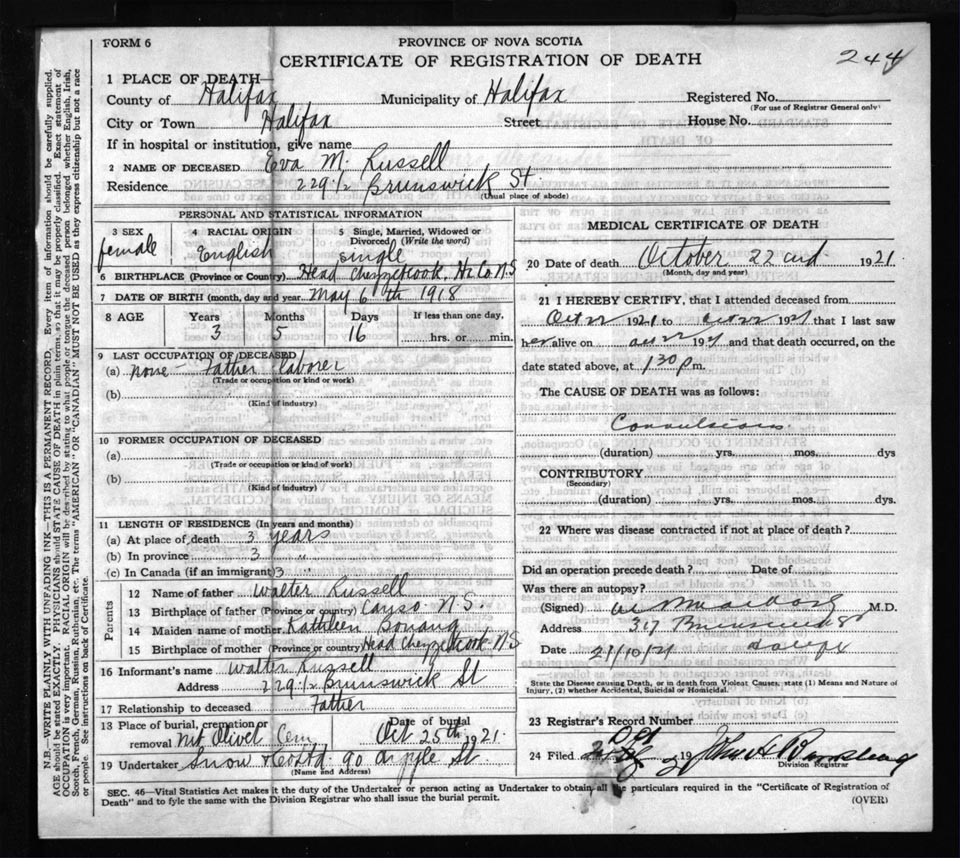 FORM 6
PROVINCE OF NOVA SCOTIA
CERTIFICATE OF REGISTRATION OF DEATH
244
1 PLACE OF DEATH—
County of Halifax Municipality of Halifax Registered No.
(For use of Registrar General only)
City or Town Halifax Street House No.
If in hospital or institution, give name
2 NAME OF DECEASED Eva M. Russell
Residence 229 1/2 Brunswick St.
(Usual place of abode)
PERSONAL AND STATISTICAL INFORMATION
3 SEX 4 RACIAL ORIGIN 5 Single, Married, Widowed or Divorced? (Write the word)
female English single
6 BIRTHPLACE (Province or Country) Head Chezzetcook, Hx Co N S
7 DATE OF BIRTH (month, day and year May 6th 1918
8 AGE Years Months Days If less than one day,
3 5 16 hrs. or min.
9 LAST OCCUPATION OF DECEASED
(a) none – Father laborer
(Trade or occupation or kind or work)
(b)
(Kind of industry)
10 FORMER OCCUPATION OF DECEASED
(a)
(Trade or occupation or kind of work)
(b)
(Kind of industry)
11 LENGTH OF RESIDENCE (In years and months)
(a) At place of death 3 years
(b) In province 3 "
(c) In Canada (if an immigrant) 3 "
Parents
12 Name of father Walter Russell
13 Birthplace of father (Province or country) Canso N.S.
14 Maiden name of mother Kathleen Bonang
15 Birthplace of mother (Province or country) Head Chezzetcook N S
16 Informant's name Walter Russell
Address 229 1/2 Brunswick St
17 Relationship to deceased Father
13 Place of burial, cremation or removal Mt Olivet Cem Date of burial Oct 25th 1921.
19 Undertaker Snow & Co Ltd. 90 Argyle St.
(Name and Address)
MEDICAL CERTIFICATE OF DEATH
20 Date of death October 22nd 1921
(Month, day and year)
21 I HEREBY CERTIFY, that I attended deceased from
Oct 22 1921 to Oct 22 1921 that I last saw
her alive on Oct 22 1921 and that death occurred, on the
date stated above, at 1 30 p m.
The CAUSE OF DEATH was as follows:
Convulsions.
(duration) yrs. mos. dys
CONTRIBUTORY
(Secondary)
(duration) yrs. mos. dys.
22 Where was disease contracted if not at place of death?
Did an operation precede death? Date of
Was there an autopsy?
(Signed) M.D.
Address 317 Brunswick St
Date 21/10/21 Halifx
State the Disease causing Death, or in death from Violent Causes, state (1) Means and Nature of Injury, (2) whether Accidental, Suicidal or Homicidal.
23 Registrar's Record Number
24 Filed Oct 19 21
Division Registrar
SEC. 46—Vital Statistics Act makes it the duty of the Undertaker or person acting as Undertaker to obtain all the particulars required in the "Certificate of Registration of
Death" and to fyle the same with the Division Registrar who shall issue the burial permit.
(OVER)
N.B.—WRITE PLAINLY WITH UNFADING INK—THIS IS A PERMANENT RECORD. Every item of information should be carefully supplied.
AGE should be stated EXACTLY. PHYSICIANS should STATE CAUSE OF DEATH in plain terms, so that it may be properly classified. Exact statement of
OCCUPATION is very important. RACIAL ORIGIN will be described by stating to what people or tongue the deceased person belonged whether English, Irish,
Scotch, French, German, Russian, Ruthenian, etc. The terms "AMERICAN" OR "CANADIAN" MUST NOT BE USED as they express citizenship but not a race
or people. See instructions on back of Certificate.